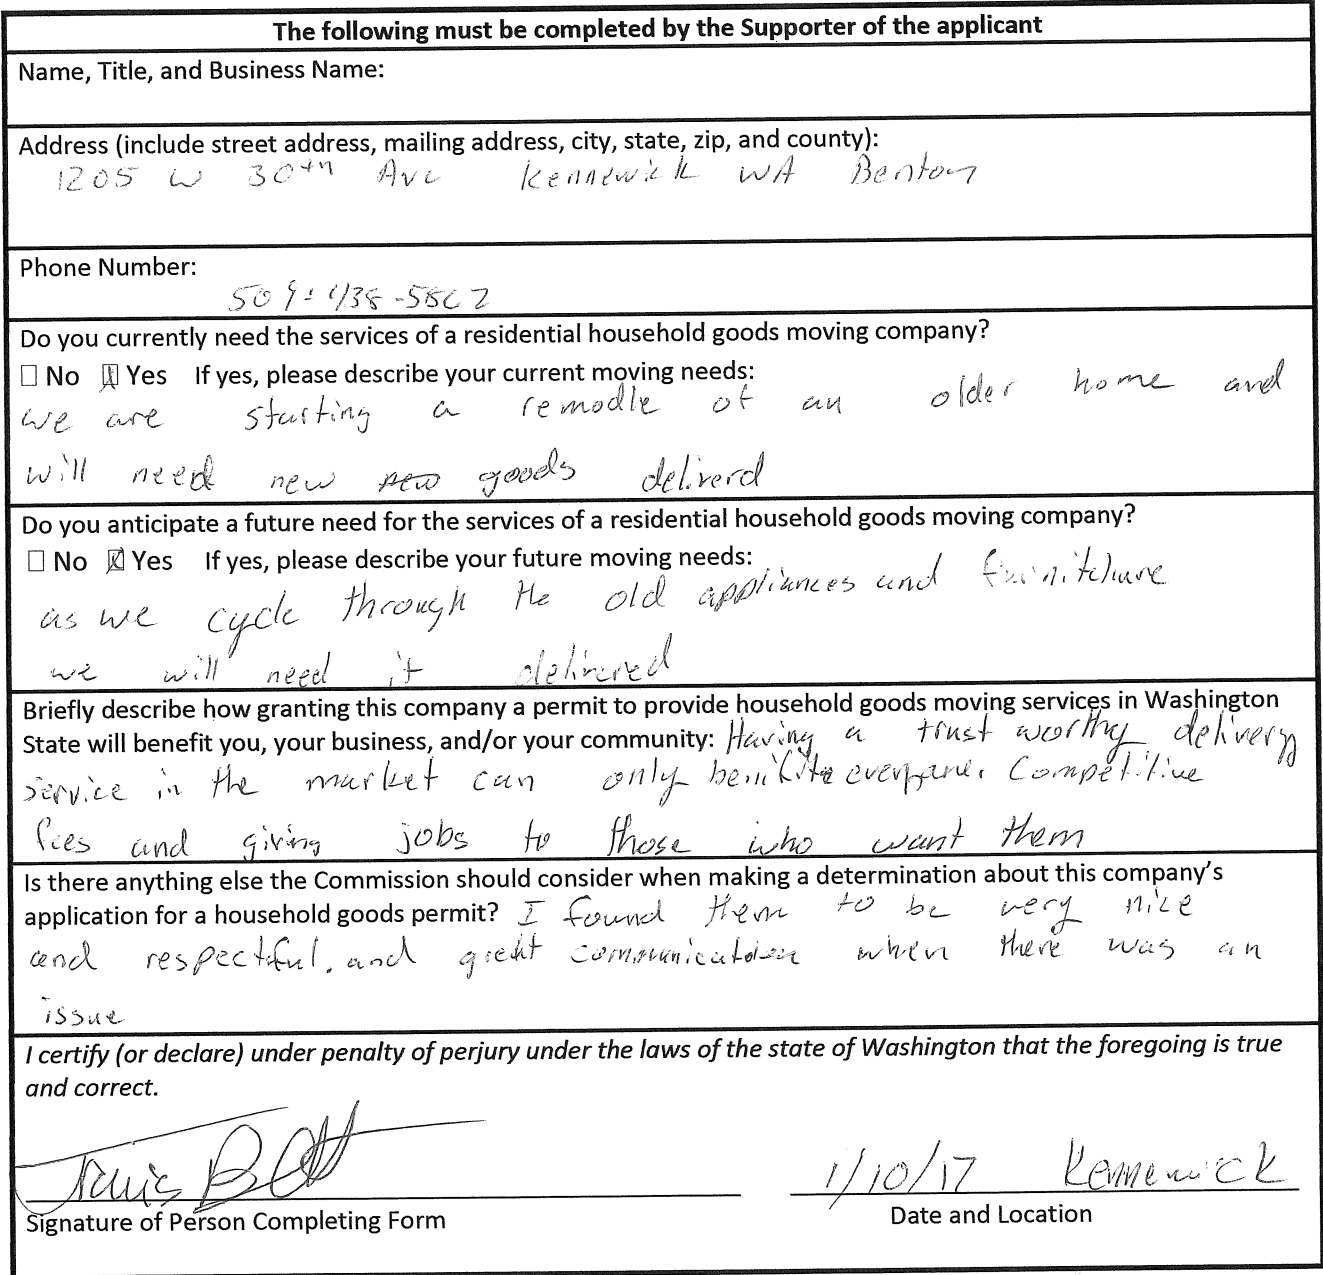 The following must be completed by the Supporter of the applicant
Name, Title, and Business Name:
Address (include street address, mailing address, city, state, zip, and county):
1205 W 30th Ave Kennewick WA Benton
Phone Number:
509-438-5862
Do you currently need the services of a residential household goods moving company?
☐ No ☒ Yes If yes, please describe your current moving needs:
we are starting a remodle of an older home and
will need new goods deliverd
Do you anticipate a future need for the services of a residential household goods moving company?
☐ No ☒ Yes If yes, please describe your future moving needs:
as we cycle through the old appliances and furnitchure
we will need it delivered
Briefly describe how granting this company a permit to provide household goods moving services in Washington
State will benefit you, your business, and/or your community: Having a trust worthy delivery
service in the market can only everyone. Competitive
fees and giving jobs to those who want them
Is there anything else the Commission should consider when making a determination about this company's
application for a household goods permit? I found them to be very nice
and respectful. and great communication when there was an
issue
I certify (or declare) under penalty of perjury under the laws of the state of Washington that the foregoing is true
and correct.
1/10/17 Kennewick
Signature of Person Completing Form Date and Location